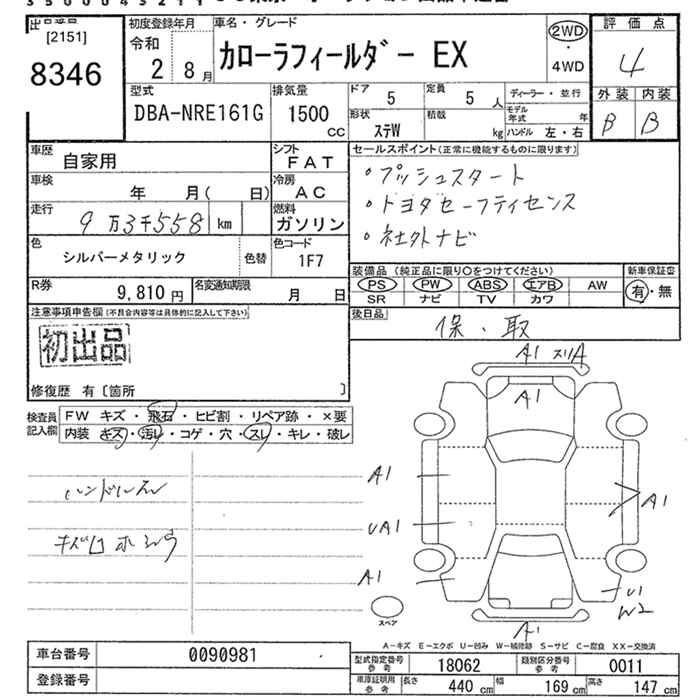 出品番号
[2151]
8346
初度登録年月
令和
2 8月
車名・グレード
カローラフィールダー EX
2WD
・
4WD
評価点
4
外装 内装
B B
型式
DBA-NRE161G
排気量
1500
CC
ドア
5
定員
5 人
ディーラー・並行
形状
ステW
積載
kg
モデル年式 年
ハンドル 左・右
車歴
自家用
シフト
FAT
車検
年 月( 日)
冷房
AC
走行
9万3千558 km
燃料
ガソリン
色
シルバーメタリック
色替
色コード
1F7
R券
9,810 円
名変通知期限
月 日
セールスポイント(正常に機能するものに限ります)
・プッシュスタート
・トヨタセーフティセンス
・社外ナビ
装備品 (純正品に限り○をつけてください)
PS PW ABS エアB AW
SR ナビ TV カワ
新車保証書
有・無
後日品
保・取
注意事項申告欄(不具合内容等は具体的に記入して下さい)
初出品
修復歴 有〔箇所 〕
検査員記入欄
FW キズ・飛石・ヒビ割・リペア跡・×要
内装 キズ・汚レ・コゲ・穴・スレ・キレ・破レ
ハンドルスレ
A1 スリA
A1
A1
A1
UA1
A1
U1
W2
A1
スペア
A-キズ E-エクボ U-凹み W-補修跡 S-サビ C-腐食 XX-交換済
車台番号
0090981
登録番号
型式指定番号 参考
18062
類別区分番号 参考
0011
車庫証明用 参考
長さ 440 cm
幅 169 cm
高さ 147 cm